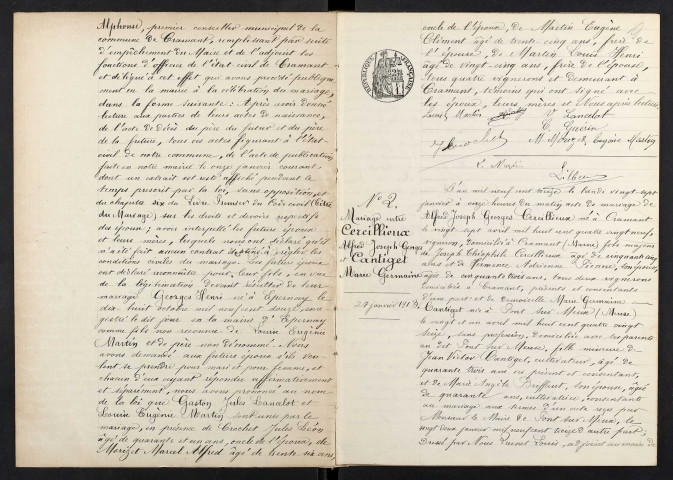 Alphonse, premier conseiller municipal de la
commune de Cramant, remplissant par suite
d'empêchement du Maire et de l'adjoint les
fonctions d'officier de l'état civil de Cramant
et délégué à cet effet que avons procédé publique
ment en la mairie à la célébration du mariage,
dans la forme suivante : Après avoir donné
lecture aux parties de leurs actes de naissance,
de l'acte de décès du père du futur et du père
de la future, tous ces actes figurant à l'état
civil de notre commune, de l'acte de publication
faite en notre mairie le onze janvier courant
dont un extrait est resté affiché pendant le
temps prescrit par la loi, sans opposition, et
du chapitre six du Livre Premier du Code civil (Titre
du Mariage) sur les droits et devoirs respectifs
des époux ; avons interpellé les futurs époux
et leurs mères, lesquels nous ont déclaré qu'il
n'a été fait aucun contrat destiné à régler les
conditions civiles du mariage. Les futurs époux
ont déclaré reconnaître pour leur fils, en vue
de la légitimation devant résulter de leur
mariage Georges Henri né à Epernay le
dix huit octobre mil neuf cent douze, en
gistré le dit jour en la mairie d'Epernay
comme fils non reconnu de Louise Eugénie
Martin et de père non dénommé. Nous
avons demandé aux futurs époux s'ils veu-
lent se prendre pour mari et pour femme, et
chacun d'eux ayant répondu affirmativement
et séparément, nous avons prononcé au nom
de la loi que Gaston Jules Lancelot et
Louise Eugénie Martin sont unis par le
mariage, en présence de Crochet Jules Léon
âgé de quarante et un ans, oncle de l'époux, de
Morizet Marcel Alfred âgé de trente six ans,
oncle de l'épouse, de Martin Eugène
Clément âgé de trente cinq ans, frère de
l'épouse, de Martin Louis Henri
âgé de vingt-cinq ans, frère de l'épouse,
tous quatre vignerons et demeurant à
Cramant, témoins qui ont signé avec
les époux, leurs mères et Nous après lecture
Louise Martin V. Lancelot
C. Guérin
J. Crochet M. Morizet Eugène Martin
L. Martin
Libeu
REPUBLIQUE FRANÇAISE
N° 2.
Mariage entre
Cercillieux
Alfred Joseph Georges
et Cantiget
Marie Germaine
27 janvier 1913
L'an mil neuf cent treize le lundi vingt sept
janvier à onze heures du matin, acte de mariage de
Alfred Joseph Georges Cercillieux né à Cramant
le vingt sept avril mil huit cent quatre vingt neuf,
vigneron, domicilié à Cramant (Marne) fils majeur
de Joseph Théophile Cercillieux âgé de cinquante cinq
ans et de Hermance Adrienne Pienne, son épouse,
âgée de cinquante trois ans, tous deux vignerons
domiciliés à Cramant, présents et consentants
d'une part et de demoiselle Marie Germaine
Cantiget née à Pont sur Meuse (Meuse)
le vingt et un avril mil huit cent quatre vingt
seize, sans profession, domiciliée avec ses parents
au dit Pont sur Meuse, fille mineure de
Jean Victor Cantiget, cultivateur, âgé de
quarante trois ans ici présent et consentant,
et de Marie Angèle Buffaut, son épouse, âgée
de quarante ans, cultivatrice, consentante
au mariage aux termes d'un acte reçu par
Monsieur le Maire de Pont sur Meuse, le
vingt deux janvier mil neuf cent treize d'autre part ;
Dressé par Nous Louis, adjoint au maire de